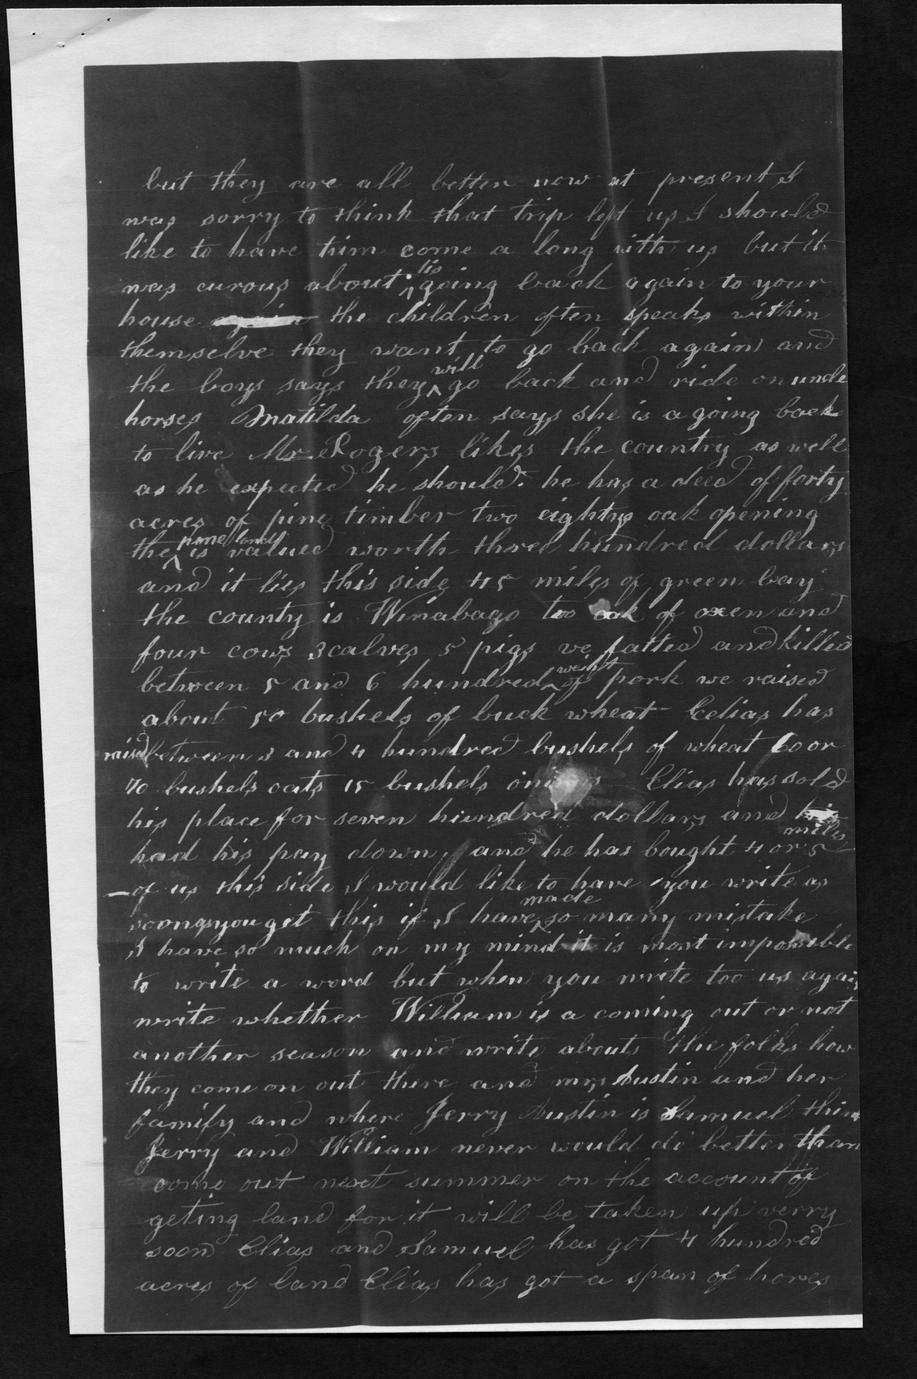 but they are all better now at present I
was sorry to think that trip left us I should
like to have him come a long with us but it
was curous about his going back again to your
house the children often speaks within
themselve they want to go back again and
the boys says they will go back and ride on uncle
horses Matilda often says she is a going back
to live Mr Rogers likes the country as well
as he expected he should. he has a deed of forty
acres of pine timber two eightys oak opening
the pine land is valued worth three hundred dollars
and it lies this side 45 miles of green bay
the county is Winabago too of oxen and
four cows 3 calves 5 pigs we fatted and killed
between 5 and 6 hundred weight of pork we raised
about 50 bushels of buck wheat Celias has
raised between 3 and 4 hundred bushels of wheat 60 or
70 bushels oats 15 bushels Elias has sold
his place for seven hundred dollars and
had his pay down, and he has bought 4 or 5 miles
of us this side I would like to have you write as
soon as you get this if I have made so many mistake
I have so much on my mind it is most impossible
to write a word but when you write too us again
write whether William is a coming out or not
another season and write about the folks how
they come on out there and mrs Austin and her
family and where Jerry Austin is Samuel think
Jerry and William never would do better than
come out next summer on the account of
geting land for it will be taken up verry
soon Elias and Samuel has got 4 hundred
acres of land Elias has got a span of horses